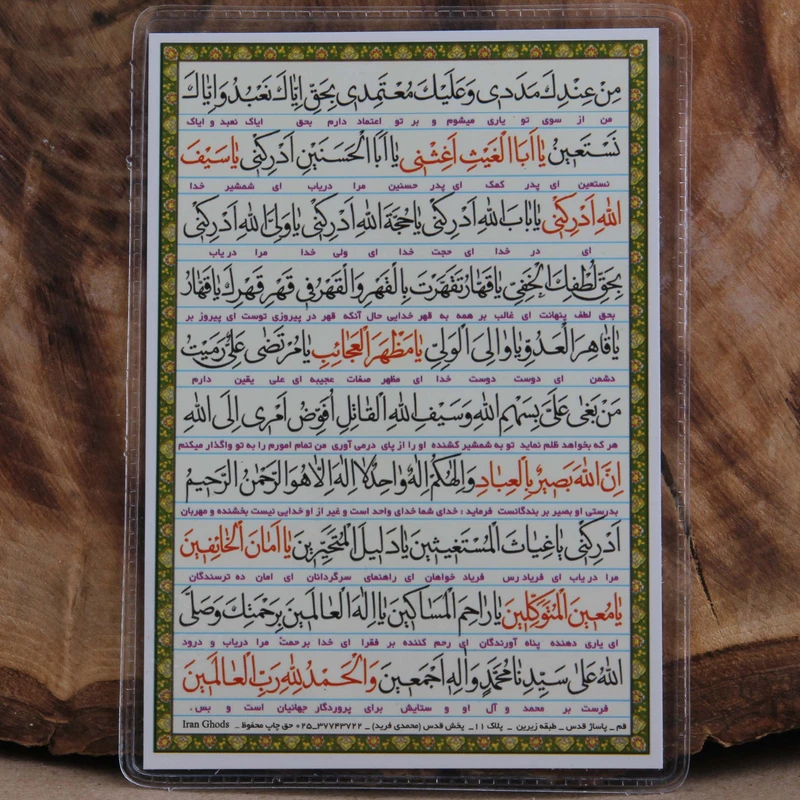 مِنْ عِنْدِكَ مَدَدی وَعَلَيْكَ مُعْتَمِدی بِحَقِّ اِيّاكَ نَعْبُدُ وَاِيّاكَ
من از سوی تو یاری میشوم و بر تو اعتماد دارم بحق ایاک نعبد و ایاک
نَسْتَعينُ يا اَبَا الْغَيْثِ اَغِثْنی يا اَبَا الْحَسَنَيْنِ اَدْرِكْنی يا سَيْفَ
نستعین ای پدر کمک ای پدر حسنین مرا دریاب ای شمشیر خدا
اللهِ اَدْرِكْنی يا بابَ اللهِ اَدْرِكْنی يا حُجَّةَ اللهِ اَدْرِكْنی يا وَلِیَّ اللهِ اَدْرِكْنی
ای در خدا ای حجت خدا ای ولی خدا مرا در یاب
بِحَقِّ لُطْفِكَ الْخَفِیِّ يا قَهّارُ تَقَهَّرْتَ بِالْقَهْرِ وَالْقَهْرُ فی قَهْرِ قَهْرِكَ يا قَهّارُ
بحق لطف پنهانت ای غالب بر همه به قهر خدایی حال آنکه قهر در پیروزی توست ای پیروز بر
يا قاهِرَ الْعَدُوِّ يا والِیَ الْوَلِیِّ يا مَظْهَرَ الْعَجائِبِ يا مُرْتَضی عَلِیُّ رَمَيْتُ
دشمن ای دوست دوست خدا ای مظهر صفات عجیبه ای علی یقین دارم
مَنْ بَغی عَلَیَّ بِسَهْمِ اللهِ وَسَيْفِ اللهِ الْقاتِلِ اُفَوِّضُ اَمْری اِلَی اللهِ
هر که بخواهد ظلم نماید تو به شمشیر کشنده او را از پای درمی آوری من تمام امورم را به تو واگذار میکنم
اِنَّ اللهَ بَصيرٌ بِالْعِبادِ وَاِلهُكُمْ اِلهٌ واحِدٌ لا اِلهَ اِلّا هُوَ الرَّحْمنُ الرَّحيمُ
بدرستی او بصیر بر بندگانست فرماید : خدای شما خدای واحد است و غیر از او خدایی نیست بخشنده و مهربان
اَدْرِكْنی يا غِياثَ الْمُسْتَغيثينَ يا دَليلَ الْمُتَحَيِّرينَ يا اَمانَ الْخائِفينَ
مرا در یاب ای فریاد رس فریاد خواهان ای راهنمای سرگردانان ای امان ده ترسندگان
يا مُعينَ الْمُتَوَكِّلينَ يا راحِمَ الْمَساكينِ يا اِلهَ الْعالَمينَ بِرَحْمَتِكَ وَصَلَّی
ای یاری دهنده پناه آورندگان ای رحم کننده بر فقرا ای خدا برحمت مرا دریاب و درود
اللهُ عَلی سَيِّدِنا مُحَمَّدٍ وَآلِهِ اَجْمَعينَ وَالْحَمْدُ لِلهِ رَبِّ الْعالَمينَ
فرست بر محمد و آل او و ستایش برای پروردگار جهانیان است و بس .
قم _ پاساژ قدس _ طبقه زیرین _ پلاک ۱۱_ پخش قدس (محمدی فرید) _ ۳۷۷۴۳۷۲۲-۰۲۵ حق چاپ محفوظ _ Iran Ghods